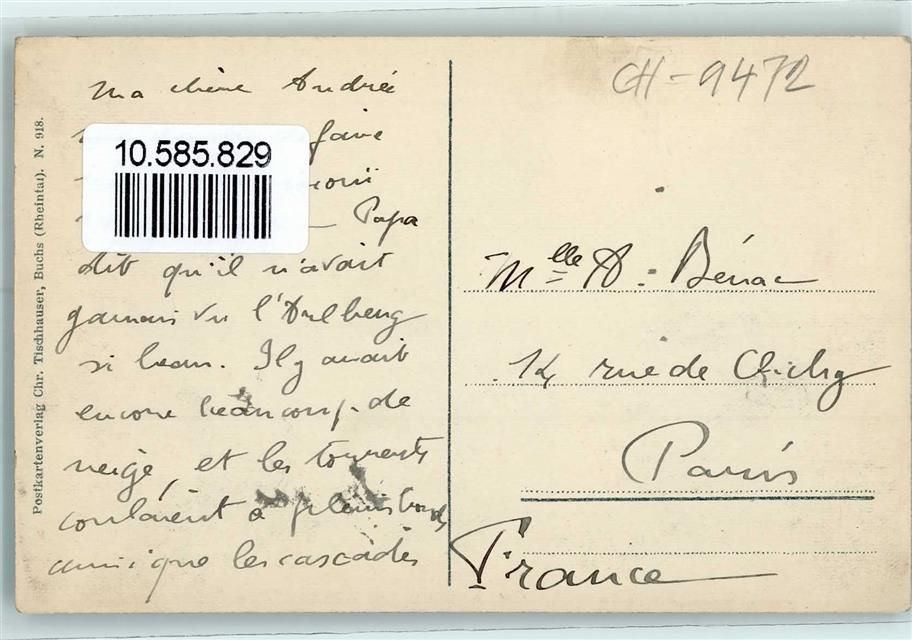 Ma chère Andrée
faire
— Papa
dit qu'il n'avait
jamais vu l'Arlberg
si beau. Il y avait
encore beaucoup de
neige, et les torrents
coulaient à pleins bords
ainsi que les cascades
10.585.829
Postkartenverlag Chr. Tischhauser, Buchs (Rheintal). N. 918.
CH-9472
Mlle A. Bénac
14 rue de Clichy
Paris
France